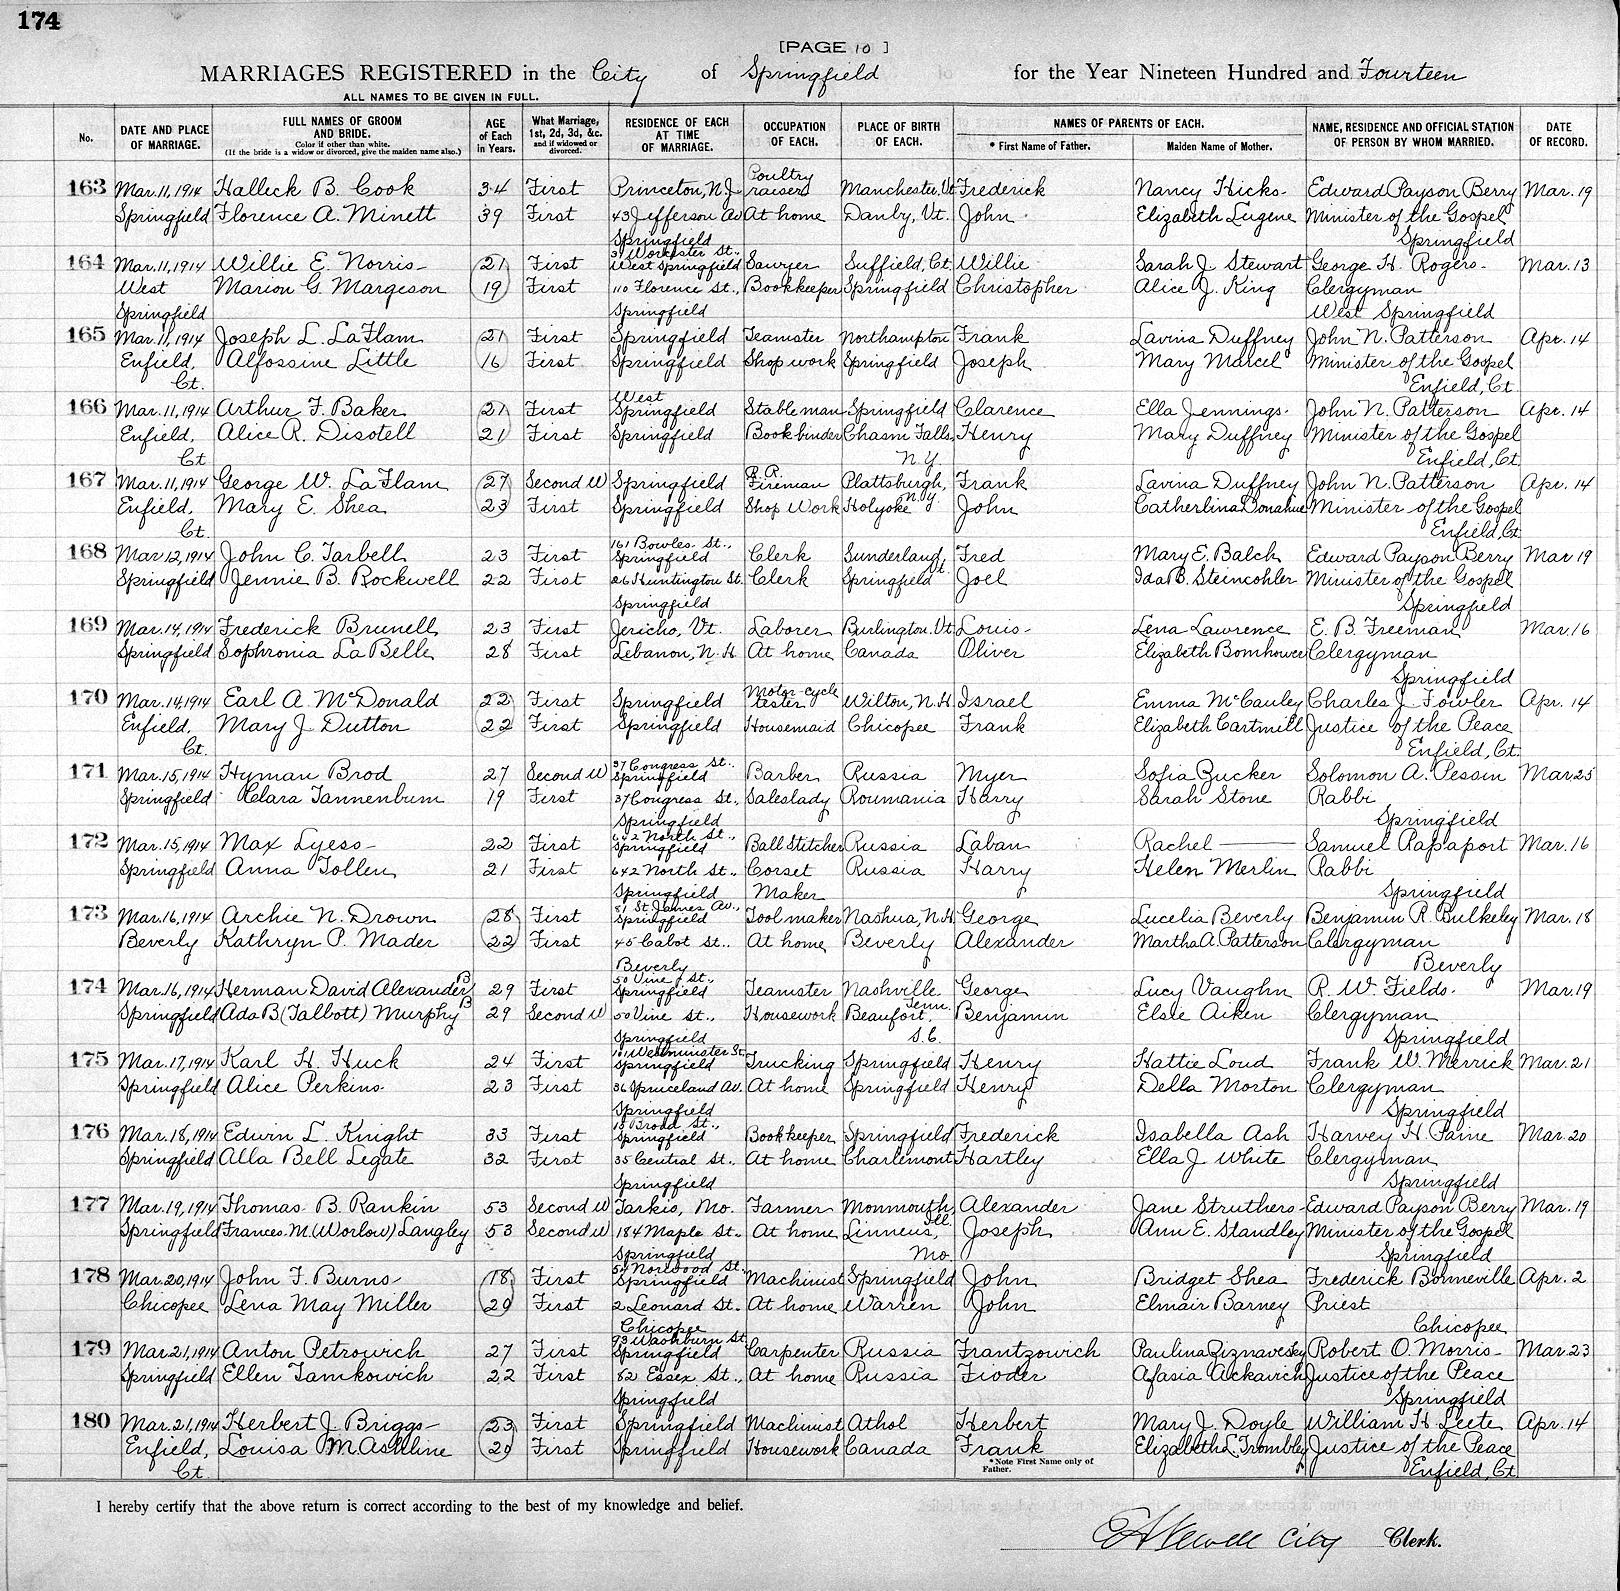 174
[PAGE 10 ]
MARRIAGES REGISTERED in the City of Springfield for the Year Nineteen Hundred and Fourteen
ALL NAMES TO BE GIVEN IN FULL.
No. DATE AND PLACE OF MARRIAGE. FULL NAMES OF GROOM AND BRIDE. Color if other than white. (If the bride is a widow or divorced, give the maiden name also.) AGE of Each in Years. What Marriage, 1st, 2d, 3d, &c. and if widowed or divorced. RESIDENCE OF EACH AT TIME OF MARRIAGE. OCCUPATION OF EACH. PLACE OF BIRTH OF EACH. NAMES OF PARENTS OF EACH. * First Name of Father. Maiden Name of Mother. NAME, RESIDENCE AND OFFICIAL STATION OF PERSON BY WHOM MARRIED. DATE OF RECORD.
163 Mar. 11, 1914 Hallick B. Cook 34 First Princeton, N.J. Poultry raiser Manchester, Vt. Frederick Nancy Hicks Edward Payson Berry Mar. 19
Springfield Florence A. Minett 39 First 43 Jefferson Av. At home Danby, Vt. John Elizabeth Eugene Minister of the Gospel
Springfield Springfield
164 Mar. 11, 1914 Willie E. Norris 21 First 37 Worcester St., West Springfield Sawyer Suffield, Ct. Willie Sarah J. Stewart George H. Rogers Mar. 13
West Marion G. Margeson 19 First 110 Florence St., Bookkeeper Springfield Christopher Alice J. King Clergyman
Springfield Springfield West Springfield
165 Mar. 11, 1914 Joseph L. LaFlam 21 First Springfield Teamster Northampton Frank Lavina Duffney John N. Patterson Apr. 14
Enfield, Alfossine Little 16 First Springfield Shop work Springfield Joseph Mary Marcel Minister of the Gospel
Ct. Enfield, Ct.
166 Mar. 11, 1914 Arthur F. Baker 21 First West Springfield Stableman Springfield Clarence Ella Jennings John N. Patterson Apr. 14
Enfield, Alice R. Disotell 21 First Springfield Bookbinder Chasm Falls, Henry Mary Duffney Minister of the Gospel
Ct. N.Y. Enfield, Ct.
167 Mar. 11, 1914 George W. LaFlam 27 Second W Springfield R.R. Fireman Plattsburgh, N.Y. Frank Lavina Duffney John N. Patterson Apr. 14
Enfield, Mary E. Shea 23 First Springfield Shop Work Holyoke John Catherlina Donahue Minister of the Gospel
Ct. Enfield, Ct.
168 Mar. 12, 1914 John C. Tarbell 23 First 161 Bowles St., Springfield Clerk Sunderland, Vt. Fred Mary E. Balch Edward Payson Berry Mar 19
Springfield Jennie B. Rockwell 22 First 26 Huntington St. Clerk Springfield Joel Ida B. Steincohler Minister of the Gospel
Springfield Springfield
169 Mar. 14, 1914 Frederick Brunell 23 First Jericho, Vt. Laborer Burlington, Vt. Louis Lena Lawrence E. B. Freeman Mar. 16
Springfield Sophronia La Belle 28 First Lebanon, N.H. At home Canada Oliver Elizabeth Bomhower Clergyman
Springfield
170 Mar. 14, 1914 Earl A. McDonald 22 First Springfield Motor-cycle tester Wilton, N.H. Israel Emma McCauley Charles J. Fowler Apr. 14
Enfield, Mary J. Dutton 22 First Springfield Housemaid Chicopee Frank Elizabeth Cartmill Justice of the Peace
Ct. Enfield, Ct.
171 Mar. 15, 1914 Hyman Brod 27 Second W 37 Congress St., Springfield Barber Russia Myer Sofia Zucker Solomon A. Pessin Mar 25
Springfield Clara Tannenbum 19 First 37 Congress St., Saleslady Roumania Harry Sarah Stone Rabbi
Springfield Springfield
172 Mar. 15, 1914 Max Lyess 22 First 642 North St., Springfield Ball Stitcher Russia Laban Rachel —— Samuel Rapaport Mar. 16
Springfield Anna Tollen 21 First 642 North St., Corset Russia Harry Helen Merlin Rabbi
Springfield Maker Springfield
173 Mar. 16, 1914 Archie N. Drown 28 First 81 St. James Av., Springfield Tool maker Nashua, N.H. George Lucelia Beverly Benjamin R. Bulkeley Mar. 18
Beverly Kathryn P. Mader 22 First 45 Cabot St., At home Beverly Alexander Martha A. Patterson Clergyman
Beverly Beverly
174 Mar. 16, 1914 Herman David Alexander B 29 First 50 Vine St., Springfield Teamster Nashville Tenn. George Lucy Vaughn R. W. Fields Mar. 19
Springfield Ada B (Talbott) Murphy B 29 Second W 50 Vine St., Housework Beaufort, Benjamin Elsie Aiken Clergyman
Springfield S.C. Springfield
175 Mar. 17, 1914 Karl H. Huck 24 First 101 Westminster St. Springfield Trucking Springfield Henry Hattie Loud Frank W. Merrick Mar. 21
Springfield Alice Perkins 23 First 36 Spruceland Av. At home Springfield Henry Della Morton Clergyman
Springfield Springfield
176 Mar. 18, 1914 Edwin L. Knight 33 First 18 Broad St., Springfield Bookkeeper Springfield Frederick Isabella Ash Harvey H. Paine Mar. 20
Springfield Alla Bell Legate 32 First 35 Central St., At home Charlemont Hartley Ella J. White Clergyman
Springfield Springfield
177 Mar. 19, 1914 Thomas B. Rankin 53 Second W Tarkio, Mo. Farmer Monmouth, Ill. Alexander Jane Struthers Edward Payson Berry Mar. 19
Springfield Frances M. (Worlow) Langley 53 Second W 184 Maple St. At home Linneus, Joseph Ann E. Standley Minister of the Gospel
Springfield Mo. Springfield
178 Mar. 20, 1914 John F. Burns 18 First 54 Norwood St., Springfield Machinist Springfield John Bridget Shea Frederick Bonneville Apr. 2
Chicopee Lena May Miller 20 First 2 Leonard St. At home Warren John Elmair Barney Priest
Chicopee Chicopee
179 Mar 21, 1914 Anton Petrowich 27 First 93 Washburn St. Springfield Carpenter Russia Frantzowich Paulina Ziznavesky Robert O. Morris Mar. 23
Springfield Ellen Tamkowich 22 First 82 Essex St., At home Russia Fioder Afasia Ackavich Justice of the Peace
Springfield Springfield
180 Mar. 21, 1914 Herbert J. Briggs 23 First Springfield Machinist Athol Herbert Mary J. Doyle William H. Leete Apr. 14
Enfield, Louisa M. Ashline 20 First Springfield Housework Canada Frank Elizabeth L. Trombley Justice of the Peace
Ct. *Note First Name only of Father. Enfield, Ct.
I hereby certify that the above return is correct according to the best of my knowledge and belief.
E A Newell City Clerk.